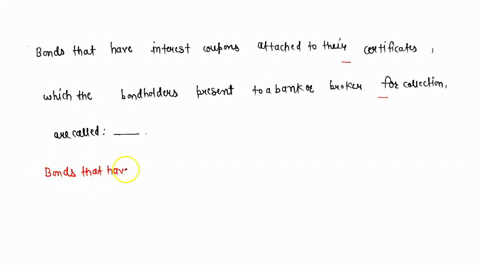 Bonds that have interest coupons attached to their certificates,
which the bondholders present to a bank or broker for collection,
are called: ____.
Bonds that hav